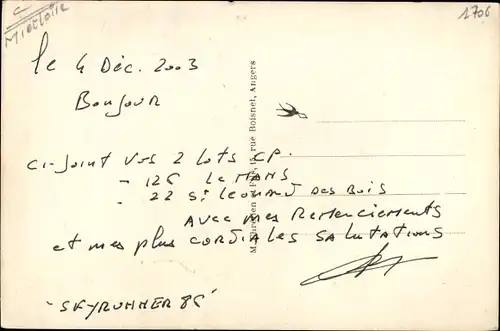 1706
le 4 Déc. 2003
Bonjour
Ci-joint vos 2 lots CP.
- 126 Le MANS
- 22 St Leonard Des Bois
Avec mes Remerciements
et mes plus cordiales salutations
"SKYRUNNER 86"
rue Boisnet, Angers